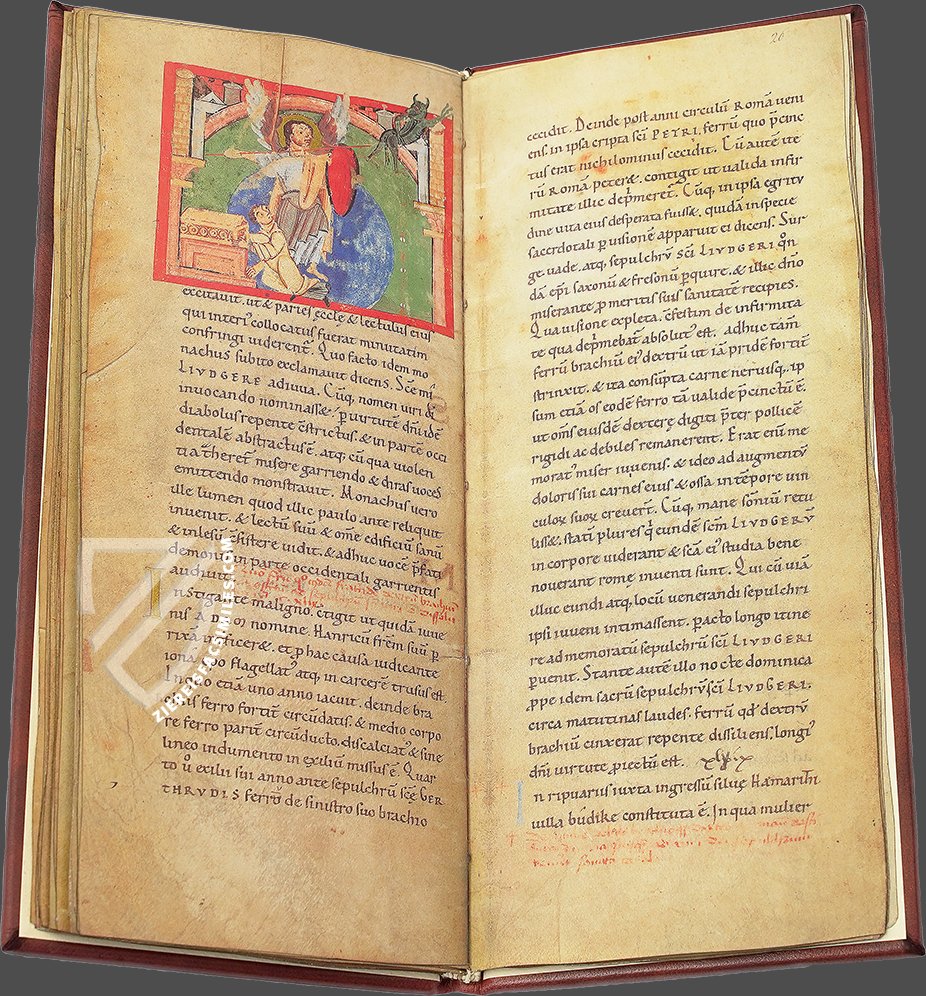 excitauit. ut & paries eccłe & lectulus eius
qui interi᷒ collocatus fuerat minutatim
confringi uiderent̄. Quo facto idem mo
nachus subito exclamauit dicens. Sc̄e mi
LIVDGERE adiuua. Cūq, nomen uiri dī
inuocando nominass&. ꝑ uirtutē dn̄i idē
diabolus repente c̄strictus. & in partē occi
dentalē abstractus ē. atq; cū qua uiolen
tia ꞇheret̄ misere garriendo & diras uoces
emittendo monstrauit. Monachus uero
ille lumen quod illic paulo ante reliquit
inuenit. & lectū suū & om̄e edificiū sanū
& inlesū c̄sistere uidit. & adhuc uocē p̄fati
demonis in parte occidentali garrientis
audiuit
Instigante maligno. c̄tigit ut quidā iuue
nis ADO nomine. Hanricū fr̄em suū ꝑ
rixā inficer&. et ꝑ hac causa iudicante
flagellat᷒ atq, in carcerē trusus est.
In quo etiā uno anno iacuit. deinde bra
chiis ferro fortit̄ circūdatis. & medio corpo
re ferro partit̄ circūducto. discalciat᷒ & sine
lineo indumento in exiliū missus ē. Quar
to ů exilii sui anno ante sepulchrū sc̄ę GER
THRVDIS ferrū de sinistro suo brachio
ZIEREISFACSIMILES.COM
26
cecidit. Deinde post anni circulū Romā ueni
ens. in ipsa cripta sc̄i PETRI, ferrū quo p̄cinc
tus erat nichilominus cecidit. Cū autē ite
rū Romā peter&. contigit ut ualida infir
mitate illic dep̄meret̄. Cūq, in ipsa egritu
dine uita eius desperata fuiss&. quidā in specie
sacerdotali ꝑ uisionē apparuit ei dicens. Sur
ge uade. atq, sepulchrū sc̄i LIVDGERI qn̄
dā ep̄i saxonū & fresonū ꝑquire. & illic dn̄o
miserante ꝑ meritis suis sanitatē recipies.
Qua uisione expleta. c̄festim de infirmita
te qua dep̄mebat̄ absolut᷒ est. adhuc tam̄
ferrū brachiū ei᷒ dextrū ut iā pridē fortit̄
strinxit. & ita consūpta carne neruisq,. ip
sum etiā os eodē ferro tā ualide p̄cinctū ē.
ut om̄s eiusdē dexterę digiti p̄ter pollicē
rigidi ac debiles remanerent. Erat eni᷒ me
morat᷒ miser iuuenis. & ideo ad augmentū
doloris sui carnes eius & ossa intēpore uin
culoꝝ suoꝝ creuer̄t. Cūq, mane sōniū retu
liss&. statī plures q̇ eundē sc̄m LIVDGERV̄
in corpore uiderant & sc̄a ei᷒ studia bene
nouerant rome inuenti sunt. Qui cū uiā
illuc eundi atq, locū uenerandi sepulchri
ipsi iuueni intimassent. ꝑacto longo itine
re ad memoratū sepulchrū sc̄i LIVDGERI
ꝑuenit. Stante autē illo nocte dominica
ꝓpe idem sacrū sepulchrū sc̄i LIVDGERI.
circa matutinas laudes. ferrū qd̄ dextrū
brachiū cinxerat repente dissiliens. longi᷒
dn̄i uirtute ꝓiectū est.
n ripuarius iuxta ingressū siluę Hamarithi
uilla būdike constituta ē. In qua mulier